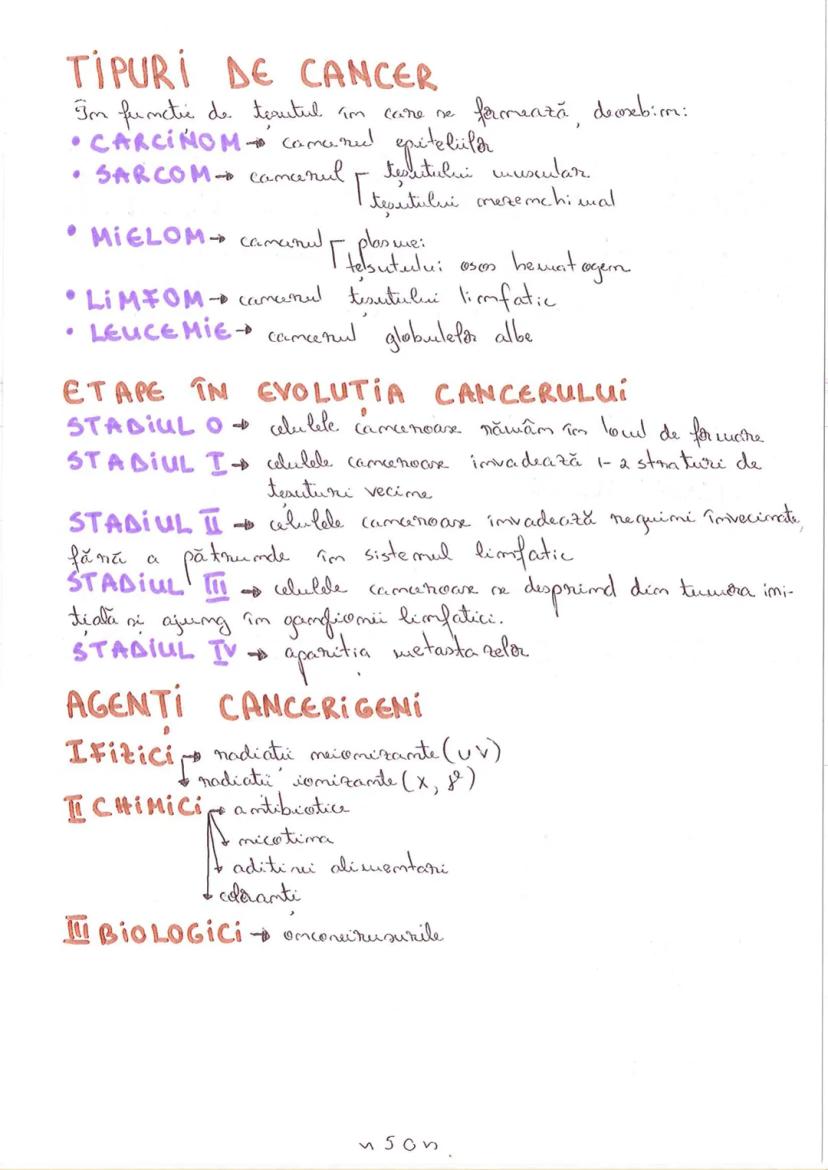 TIPURI DE CANCER
În funcție de țesutul în care se formează, deosebim:
• CARCINOM → cancerul epiteliilor
• SARCOM → cancerul țesutului muscular
țesutului mezenchimal
• MIELOM → cancerul plasmei
țelsutului osos hematogen
• LIMFOM → cancerul țesutului limfatic
• LEUCEMIE → cancerul globulelor albe
ETAPE ÎN EVOLUȚIA CANCERULUI
STADIUL 0 → celulele canceroase rămân în locul de formare
STADIUL I → celulele canceroase invadează 1-2 straturi de
țesuturi vecine
STADIUL II → celulele canceroase invadează regiuni învecinate,
fără a pătrunde în sistemul limfatic
STADIUL III → celulele canceroase se desprind din tumora ini-
țială și ajung în ganglionii limfatici.
STADIUL IV → apariția metastazelor
AGENȚI CANCERIGENI
I FIZICI → radiații neionizante (UV)
→ radiații ionizante (X, γ)
II CHIMICI → antibiotice
→ nicotina
→ aditivi alimentari
→ coloranți
III BIOLOGICI → oncovirusurile
~ 50 ~